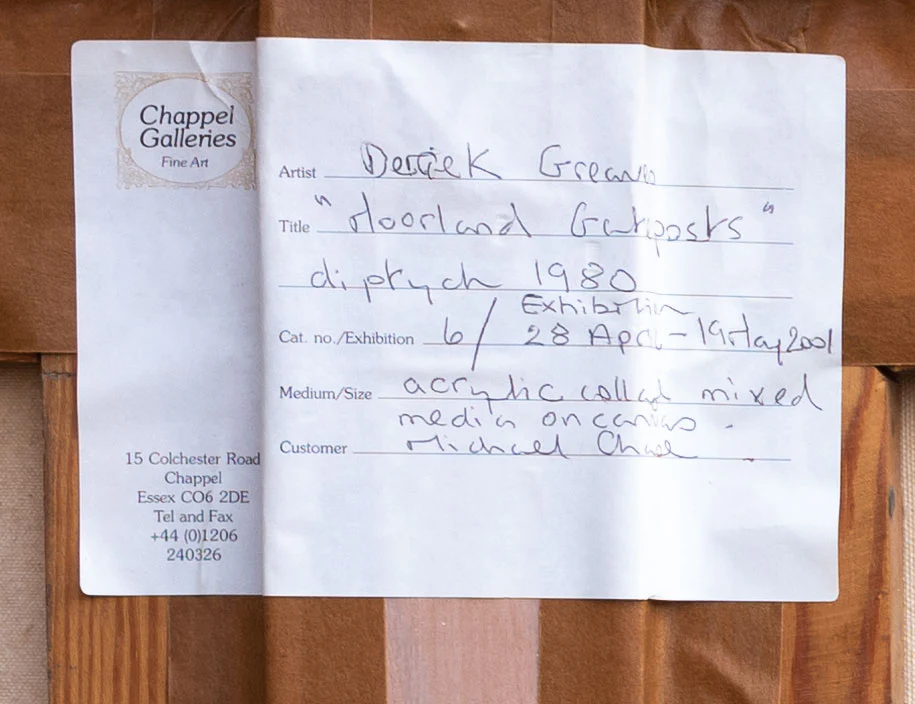 Chappel
Galleries
Fine Art
Artist Derrick Greaves
Title "Moorland Gateposts"
diptych 1980
Exhibition
Cat. no./Exhibition 6/ 28 Apr - 19 May 2001
Medium/Size acrylic collage mixed
media on canvas.
Customer Michael
15 Colchester Road
Chappel
Essex CO6 2DE
Tel and Fax
+44 (0)1206
240326